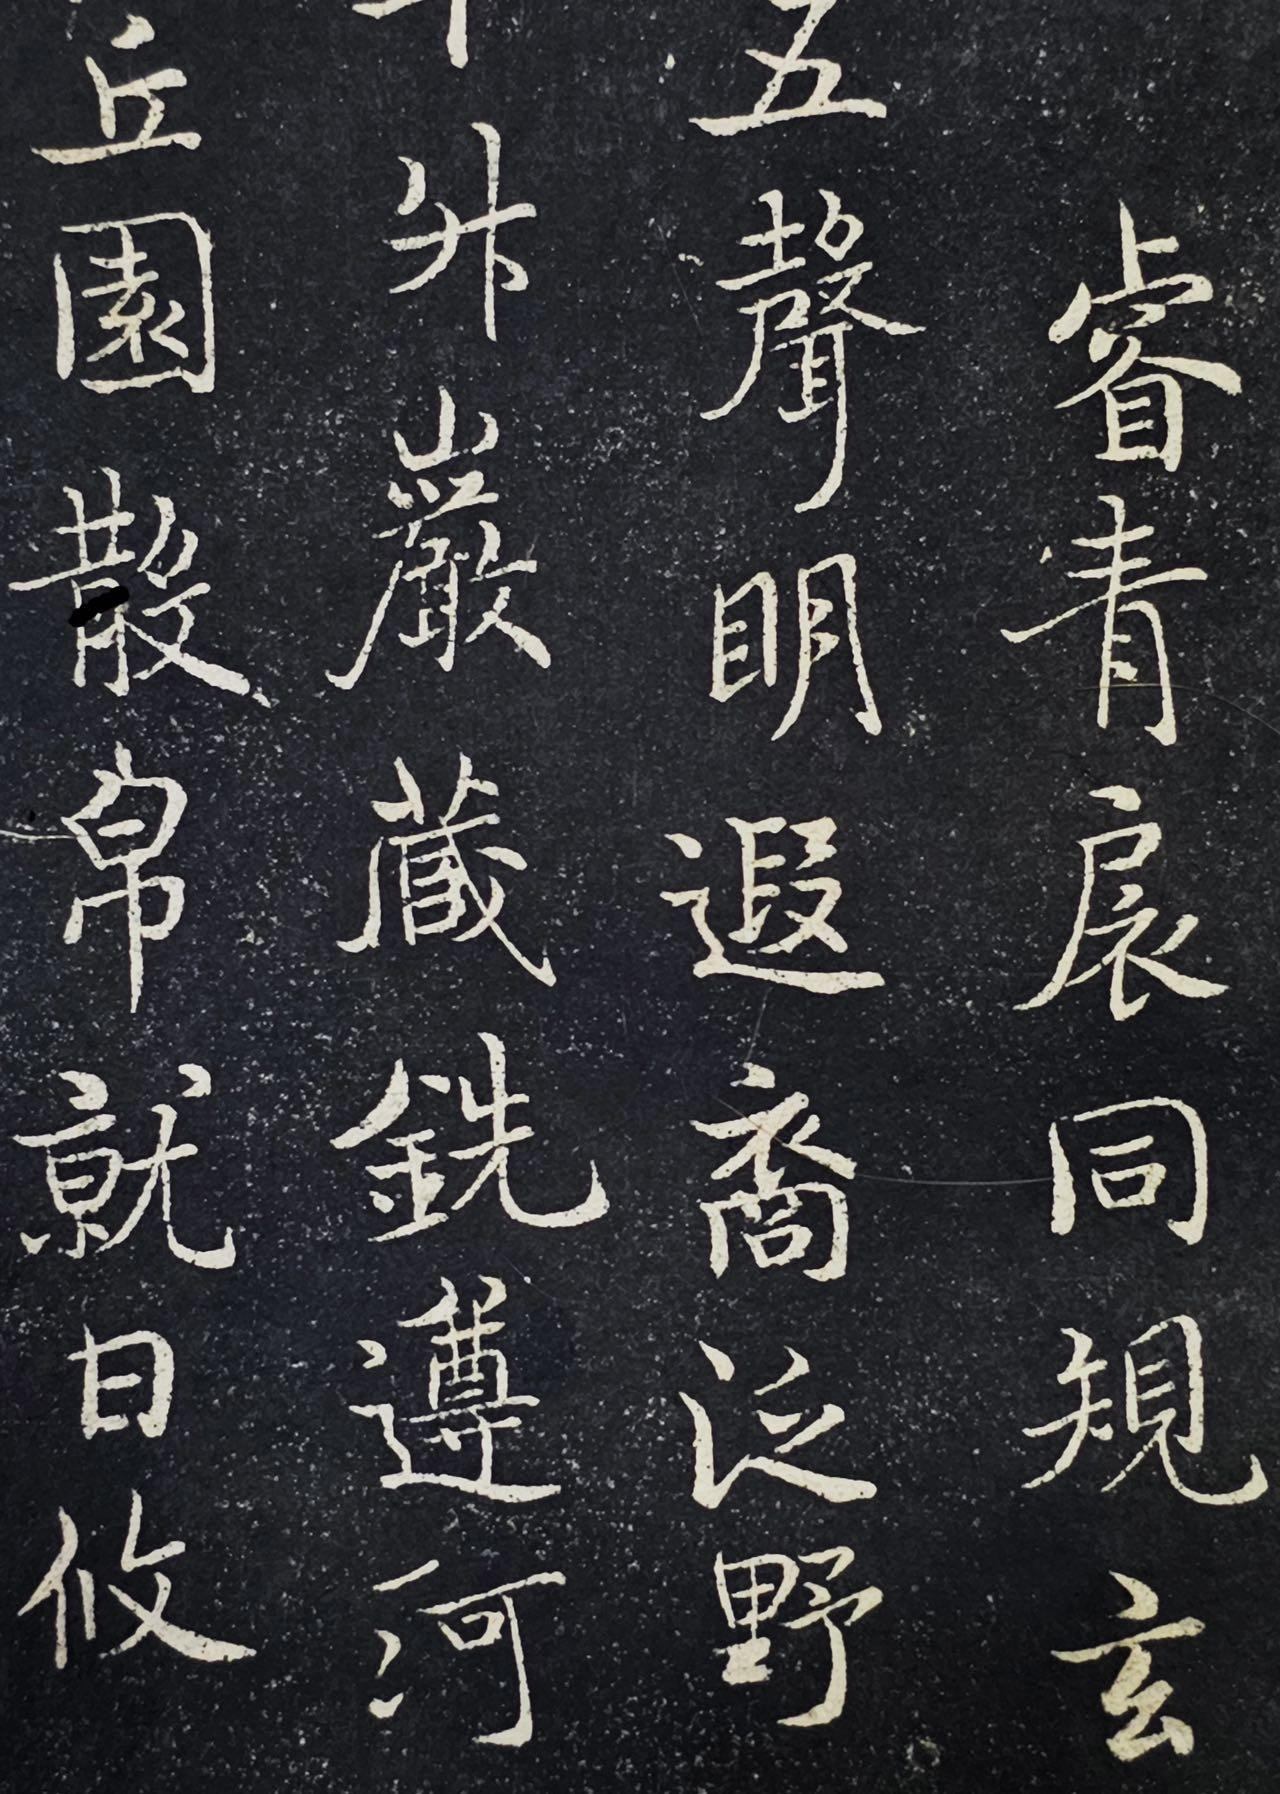 睿青扆同規玄
五聲明遐裔泛野
升巖藏銑遵河
丘園散帛就日攸